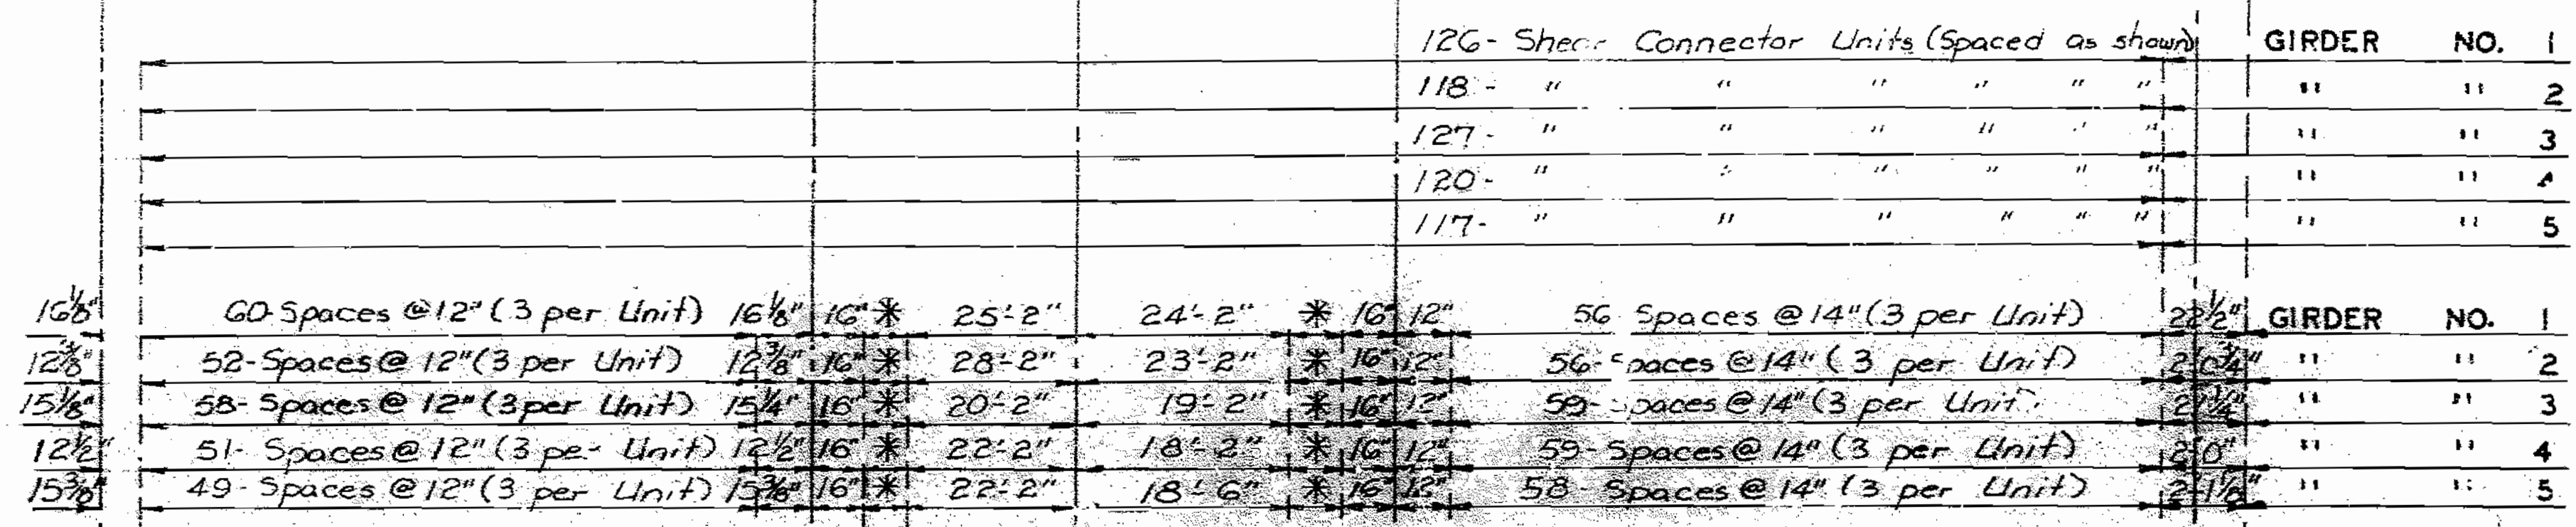 126- Shear Connector Units (Spaced as shown) GIRDER NO. 1
118- " " " " " " " " 2
127- " " " " " " " " 3
120- " " " " " " " " 4
117- " " " " " " " " 5
16⅛" 60-Spaces @ 12" (3 per Unit) 16⅛" 16" * 25'-2" 24'-2" * 16" 12" 56 Spaces @ 14" (3 per Unit) GIRDER NO. 1
12⅜" 52-Spaces @ 12" (3 per Unit) 12⅜" 16" * 28'-2" 23'-2" * 16" 12" 56-Spaces @ 14" (3 per Unit) " " 2
15⅛" 58-Spaces @ 12" (3 per Unit) 15¼" 16" * 20'-2" 19'-2" * 16" 12" 59-Spaces @ 14" (3 per Unit) " " 3
12½" 51-Spaces @ 12" (3 per Unit) 12½" 16" * 22'-2" 18'-2" * 16" 12" 59-Spaces @ 14" (3 per Unit) 2'0" " " 4
15⅜" 49-Spaces @ 12" (3 per Unit) 15⅜" 16" * 22'-2" 18'-6" * 16" 12" 58-Spaces @ 14" (3 per Unit) 2'-1⅛" " " 5